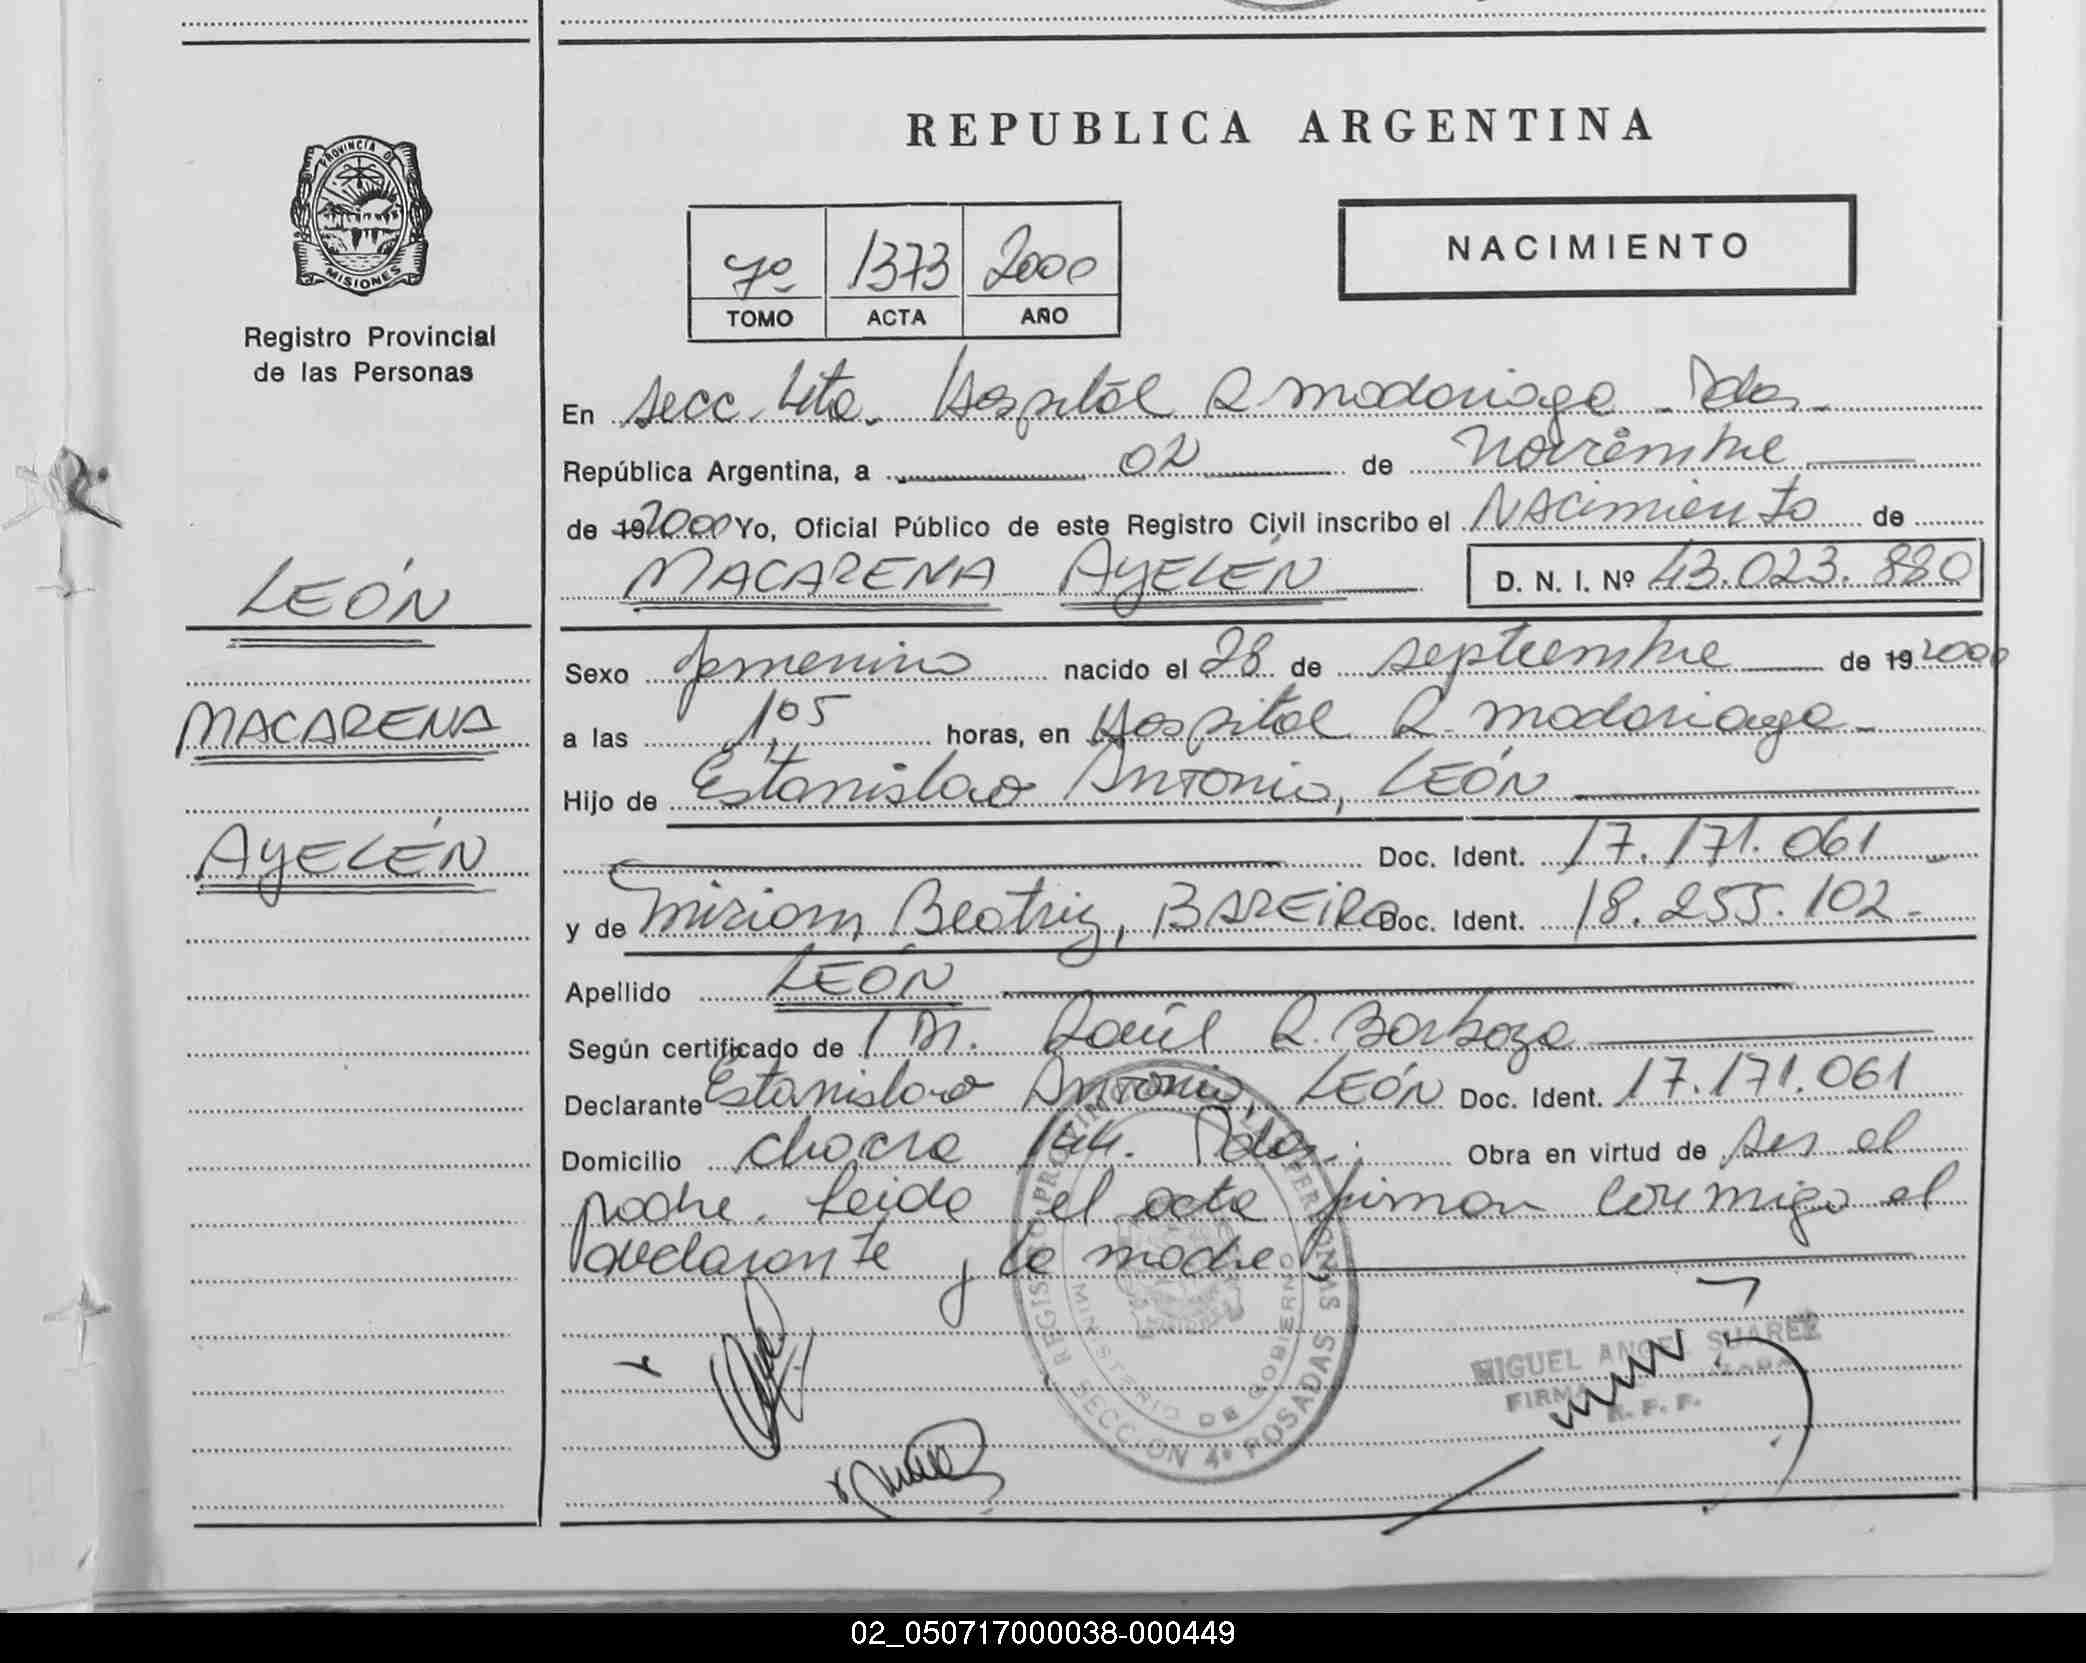 REPUBLICA ARGENTINA
PROVINCIA DE
MISIONES
Registro Provincial
de las Personas
7º 1373 2000
TOMO ACTA AÑO
NACIMIENTO
En Secc. 4ta. Hospital R Madariaga - Pdas -
República Argentina, a 02 de Noviembre
de 19 2000 Yo, Oficial Público de este Registro Civil inscribo el Nacimiento de
MACARENA AYELÉN D. N. I. Nº 43.023.880
LEÓN
MACARENA
AYELÉN
Sexo femenino nacido el 28 de septiembre de 19 2000
a las 1,05 horas, en Hospital R. Madariaga -
Hijo de Estanislao Antonio, LEÓN
Doc. Ident. 17.171.061 -
y de Miriam Beatriz, BAREIRO Doc. Ident. 18.255.102 -
Apellido LEÓN
Según certificado de Dr. Raúl R. Barboza
Declarante Estanislao Antonio, LEÓN Doc. Ident. 17.171.061
Domicilio chacra 144. Pdas. Obra en virtud de ser el
padre. Leida el acta firman conmigo el
declarante y la madre
REGISTRO PROVINCIAL DE LAS PERSONAS
MINISTERIO DE GOBIERNO
SECCION 4º POSADAS
MIGUEL ANGEL SUAREZ
FIRMA
R. F. F.
02_050717000038-000449